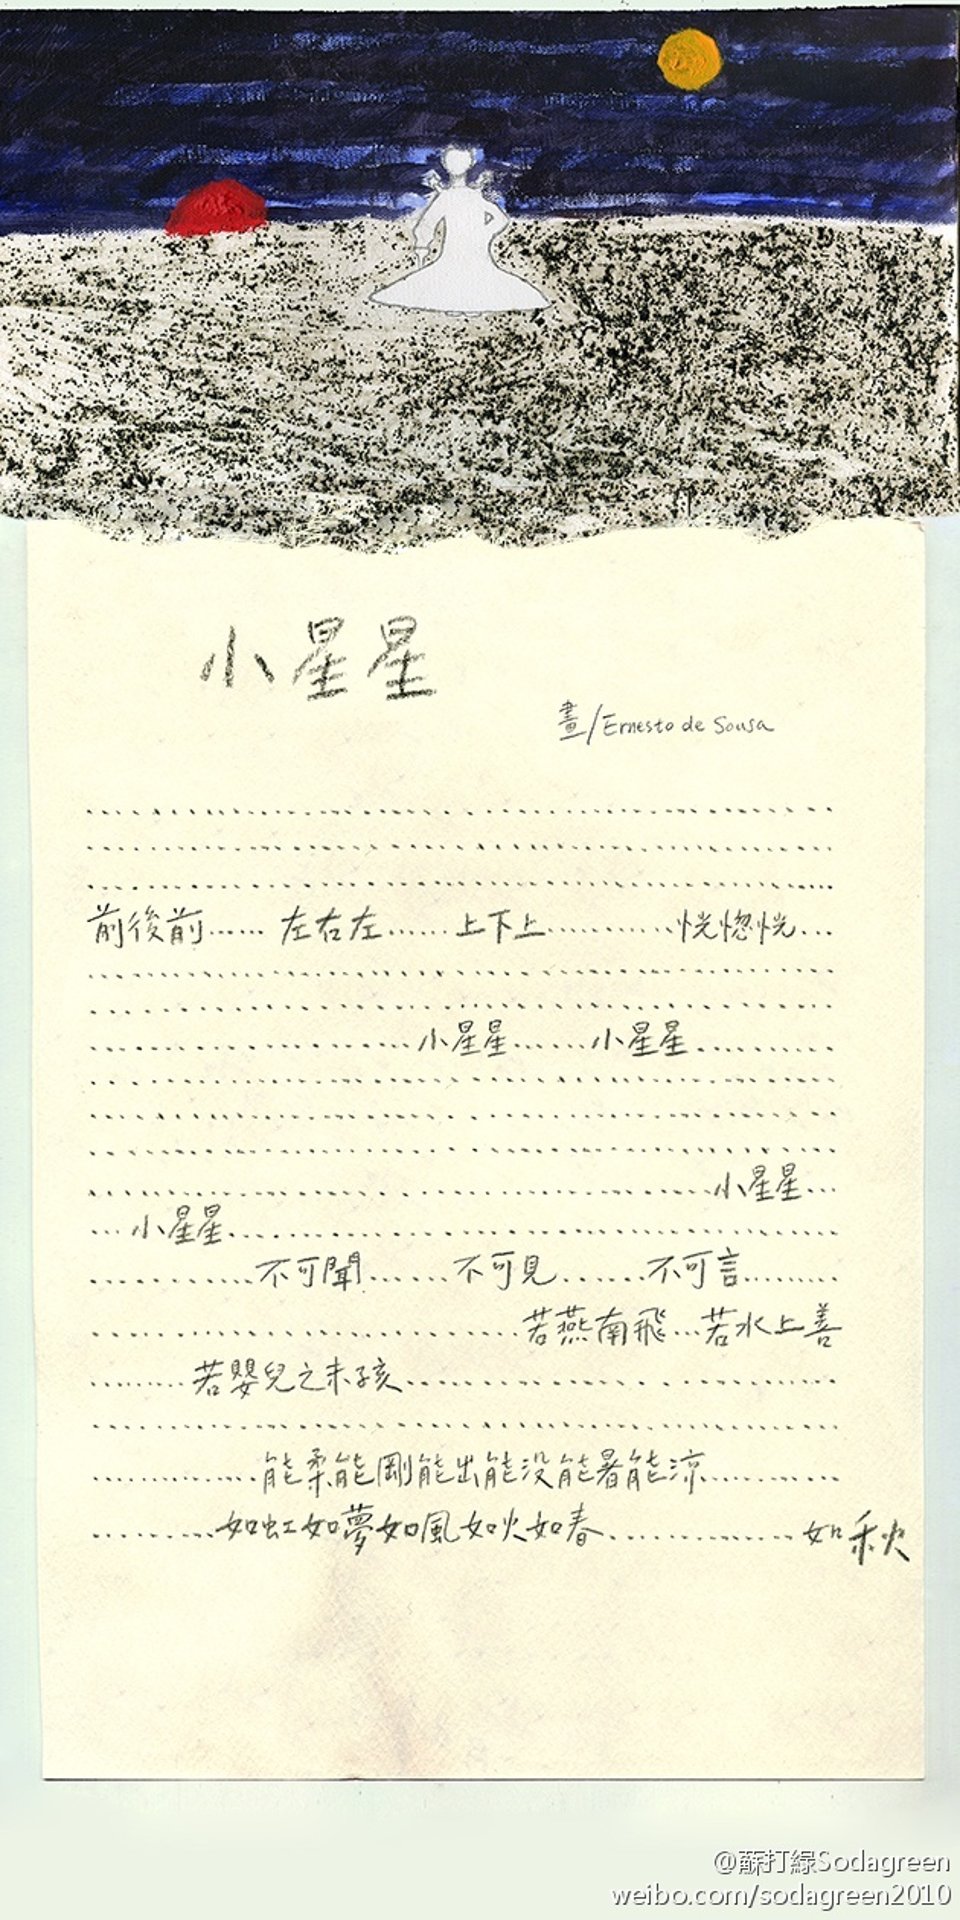 小星星
畫/Ernesto de Sousa
前後前...... 左右左...... 上下上............恍惚恍...
小星星......小星星..........
小星星...
...小星星..........
..........不可聞......不可見......不可言........
若燕南飛...若水上善
........若嬰兒之未孩..........
............能柔能剛能出能没能暑能涼..........
..........如虹如夢如風如火如春..............如秋
@蘇打綠Sodagreen
weibo.com/sodagreen2010